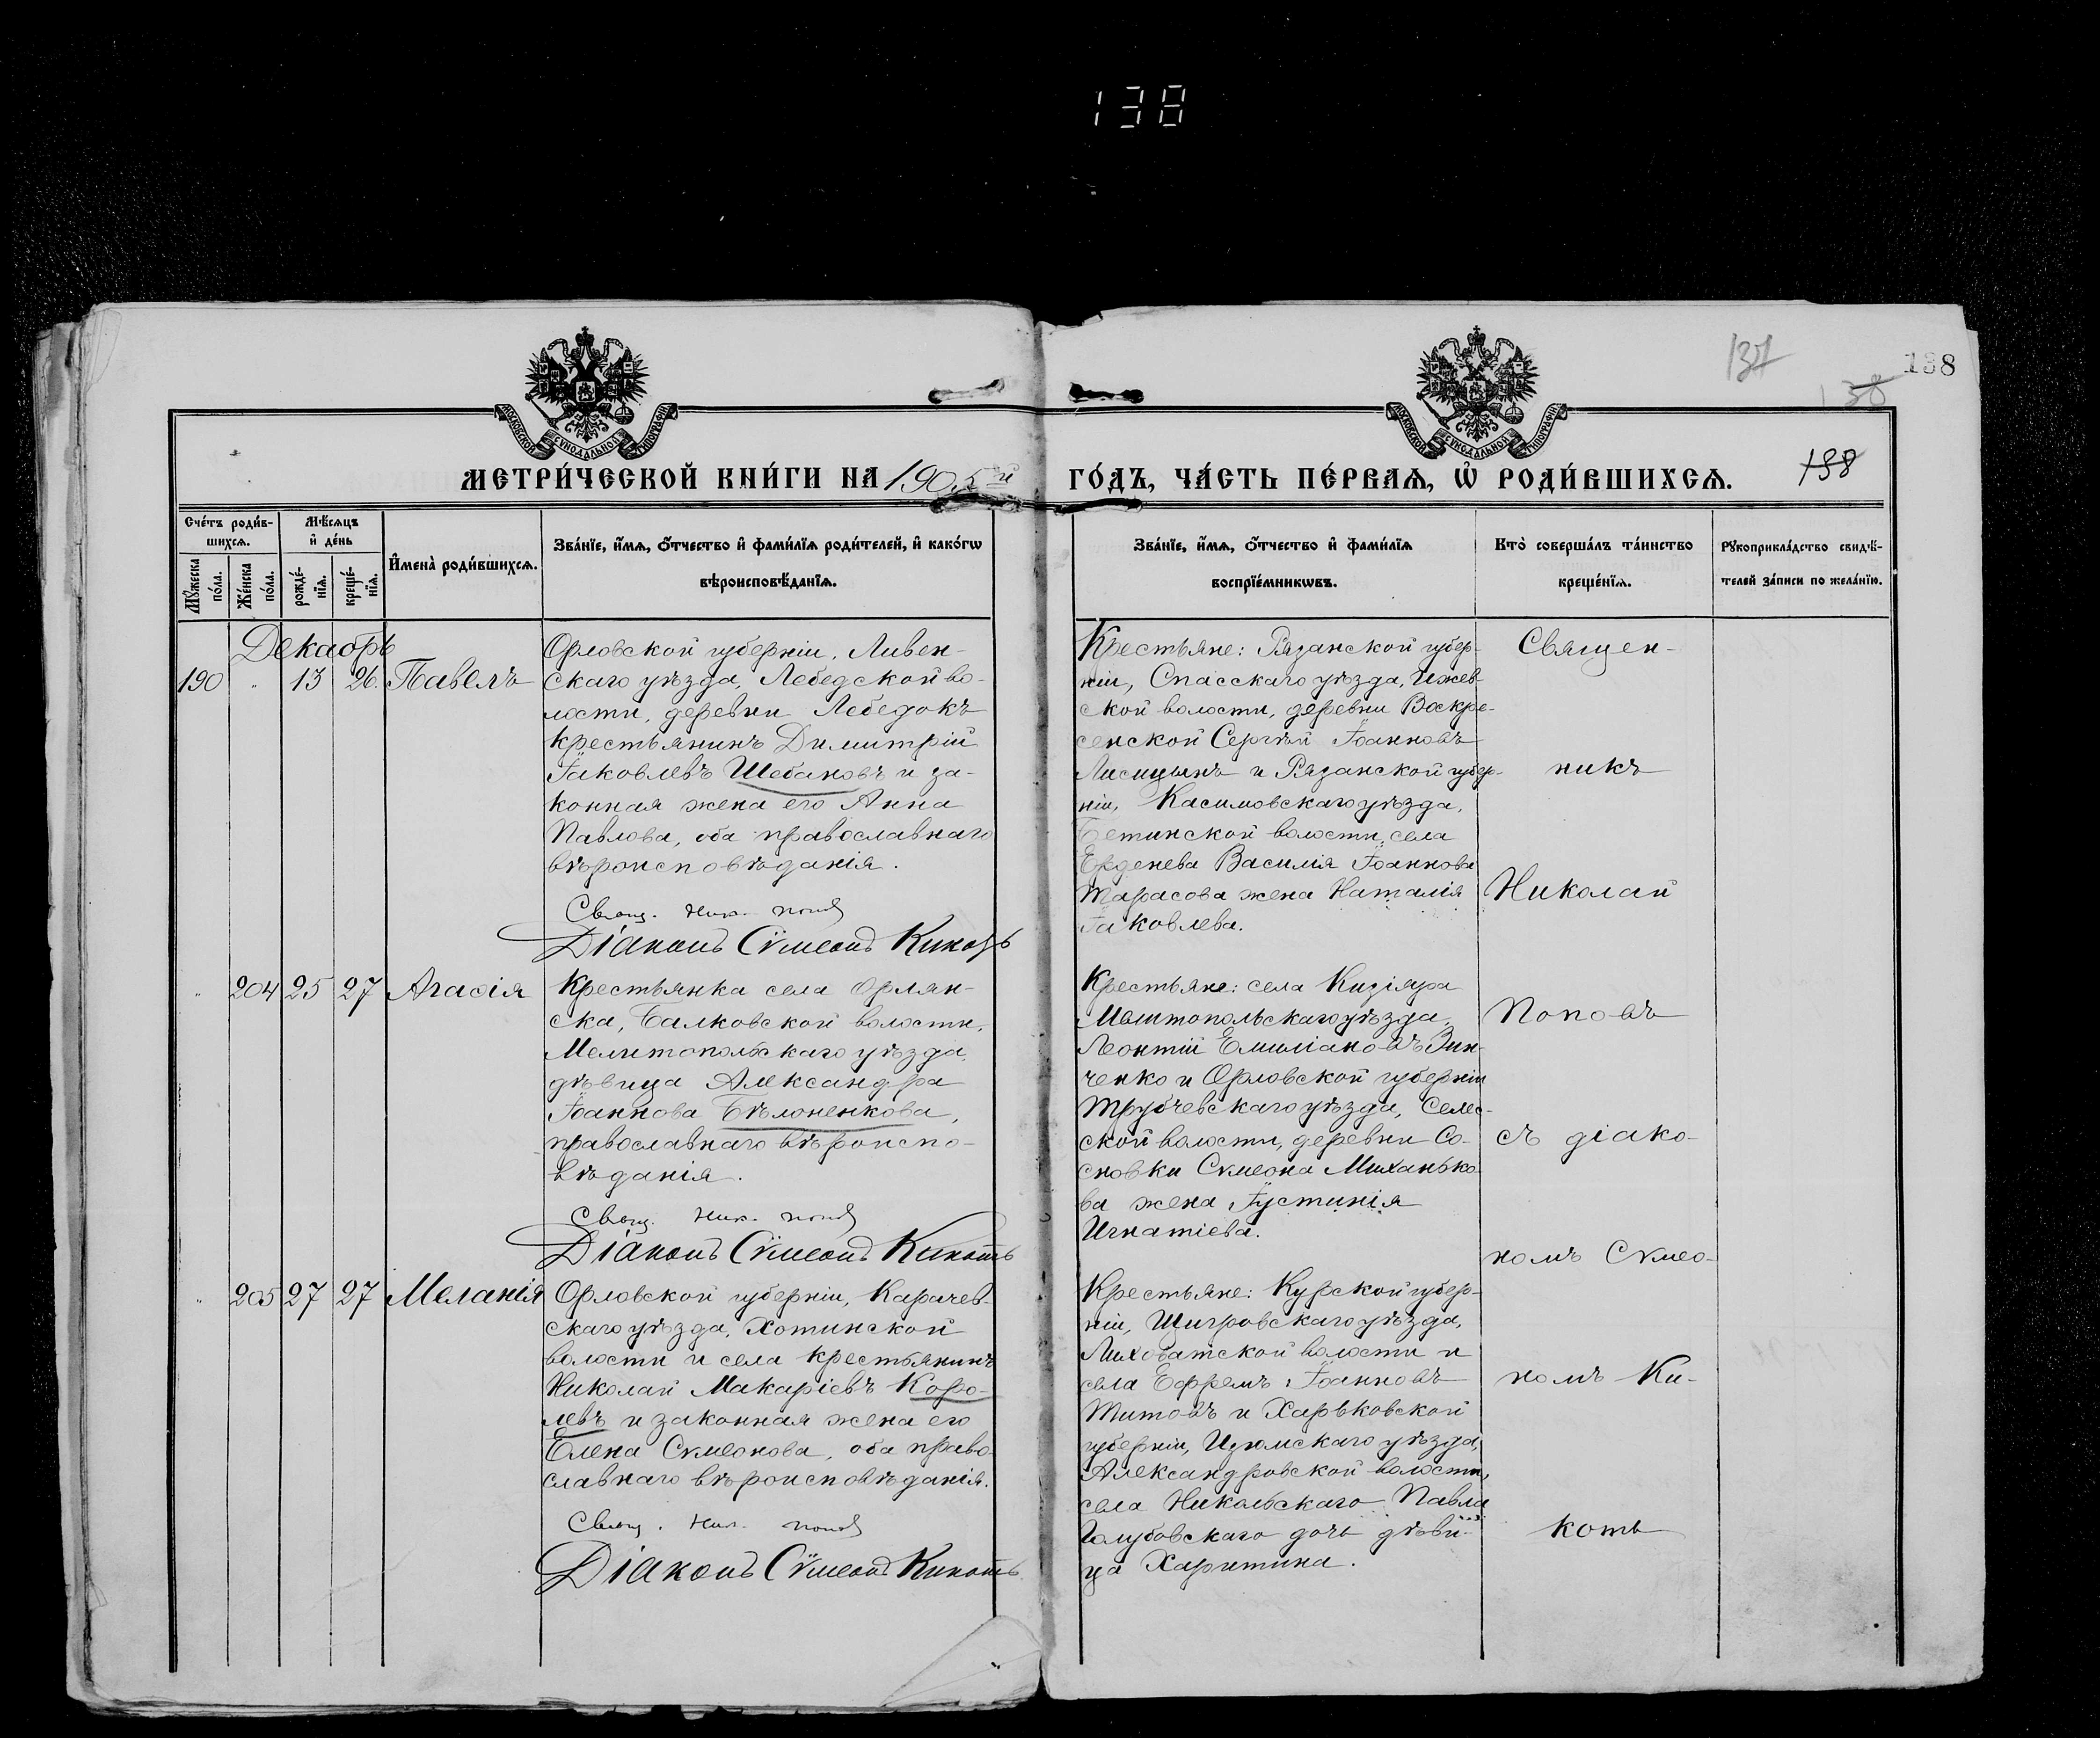 138
137
138
138
МОСКОВСКОЙ СУНОДАЛЬНОЙ ТИПОГРАФІИ
МОСКОВСКОЙ СУНОДАЛЬНОЙ ТИПОГРАФІИ
МЕТРИ́ЧЕСКОЙ КНИ́ГИ НА 1905й
ГО́ДЪ, ЧА́СТЬ ПЕ́РВАѦ, Ѡ҆ РОДИ́ВШИХСѦ.
138
Сче́тъ роди́в-
шихсѧ.
Мꙋ́жеска по́ла.
Же́нска по́ла.
Мѣ́сѧцъ
и҆ де́нь
рожде́-
нїѧ.
креще́-
нїѧ.
И҆мена̀ роди́вшихсѧ.
Зва́нїе, и҆́мѧ, ѻ҆́тчество и҆ фами́лїѧ роди́телей, и҆ како́гѡ
вѣроисповѣ́данїѧ.
Зва́нїе, и҆́мѧ, ѻ҆́тчество и҆ фами́лїѧ
воспрїе́мникѡвъ.
Кто̀ соверша́лъ та́инство
креще́нїѧ.
Рꙋкоприкла́дство свидѣ́-
телей за́писи по жела́нїю.
Декабрь
190 " 13 26. Павелъ
Орловской губерніи, Ливен-
скаго уѣзда, Лебедской во-
лости, деревни Лебедокъ
крестьянинъ Димитрій
Іаковлевъ Шебановъ и за-
конная жена его Анна
Павлова, оба православнаго
вѣроисповѣданія.
Свящ. Ник. Попов
Діаконъ Сѵмеонъ Кикоть
Крестьяне: Рязанской губер-
ніи, Спасскаго уѣзда, Ижев-
ской волости, деревни Воскре-
сенской Сергѣй Іоанновъ
Лисицынъ и Рязанской губер-
ніи, Касимовскаго уѣзда,
Бетинской волости, села
Ерденева Василія Іоаннова
Тарасова жена Наталія
Іаковлева.
" 204 25 27 Агаѳія
Крестьянка села Орлян-
ска, Балковской волости,
Мелитопольскаго уѣзда,
дѣвица Александра
Іоаннова Бѣлоненкова,
православнаго вѣроиспо-
вѣданія.
Свящ. Ник. Попов
Діаконъ Сѵмеонъ Кикоть
Крестьяне: села Кизіяра
Мелитопольскаго уѣзда,
Леонтій Емиліановъ Зин-
ченко и Орловской губерніи
Трубчевскаго уѣзда, Селец-
ской волости, деревни Со-
сновки Сѵмеона Миханько-
ва жена Іустинія
Игнатіева.
" 205 27 27 Меланія
Орловской губерніи, Карачев-
скаго уѣзда, Хотинской
волости и села крестьянинъ
Николай Макаріевъ Коро-
левъ и законная жена его
Елена Сѵмеонова, оба право-
славнаго вѣроисповѣданія.
Свящ. Ник. Попов
Діаконъ Сѵмеонъ Кикоть
Крестьяне: Курской губер-
ніи, Щигровскаго уѣзда,
Лиховатской волости и
села Ефремъ Іоанновъ
Титовъ и Харьковской
губерніи, Изюмскаго уѣзда,
Александровской волости,
села Никольскаго Павла
Голубовскаго дочь дѣви-
ца Харитина.
Священ-
никъ
Николай
Поповъ
съ діако-
номъ Сѵмео-
номъ Ки-
коть